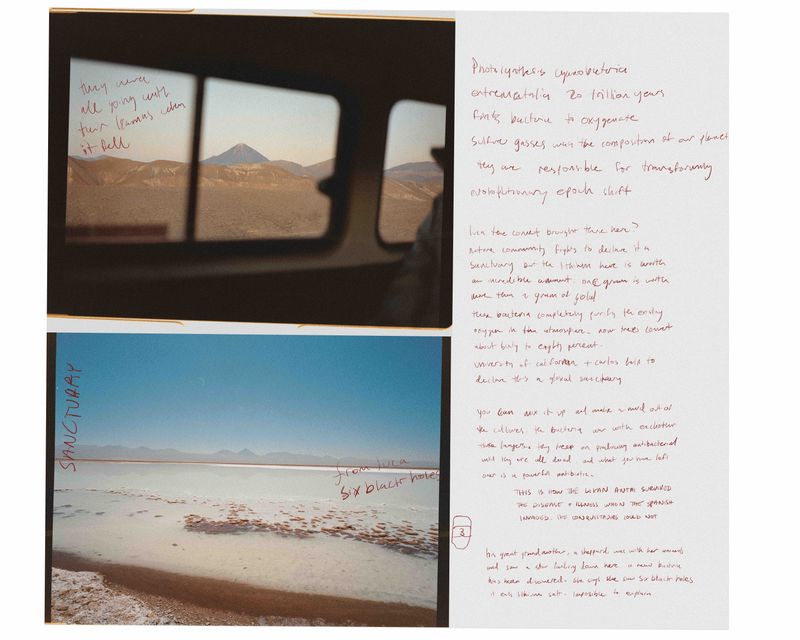 they were
all going with
their llamas when
it fell
SANCTUARY
from luca
six black holes
Photosynthesis cyanobacteria
20 trillion years
bacteria to oxygenate
sulfur gasses was the composition of our planet
they are responsible for transforming
epoch shift
luca the comet brought these here?
native community fights to declare it a
sanctuary but the lithium here is worth
an incredible ammount. one gram is worth
more than 2 gram of gold
these bacteria completely purify the
oxygen in the atmosphere. now trees covert
about to eighty percent.
university of california + carlos help to
declare this a global sanctuary
you can mix it up and make a mud out of
the cultures. the bacteria war with eachother
they keep on producing antibacterial
until they are all dead and what you have left
over is a powerful antibiotic.
THIS IS HOW THE LIKAN ANTAI SURVIVED
THE DISEASE + ILLNESS WHEN THE SPANISH
INVADED. THE COULD NOT
3
his great grandmother, a sheppard was with her animals
and saw a star landing down here. a new bacteria
has been discovered. she says she saw six black holes
it eats lithium salt. impossible to explain